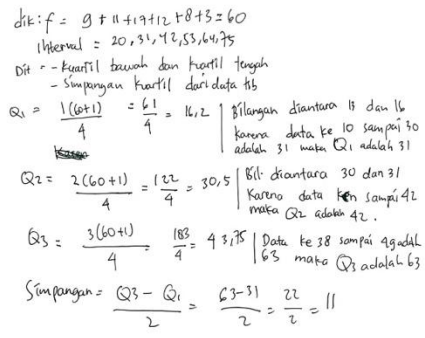 dik: f = 9 + 11 + 17 + 12 + 8 + 3 = 60
Interval = 20, 31, 42, 53, 64, 75
Dit = - kuartil bawah dan kuartil tengah
- Simpangan kuartil dari data tsb
Q₁ = 1(60+1)/4 = 61/4 = 16,2 | Bilangan diantara 15 dan 16
karena data ke 10 sampai 30
adalah 31 maka Q₁ adalah 31
Q2 = 2(60+1)/4 = 122/4 = 30,5 | Bil. diantara 30 dan 31
Karena data sampai 42
maka Q2 adalah 42.
Q3 = 3(60+1)/4 = 183/4 = 43,75 | Data ke 38 sampai 49 adalah
63 maka Q3 adalah 63
Simpangan = Q3 - Q₁/2 = 63-31/2 = 22/2 = 11